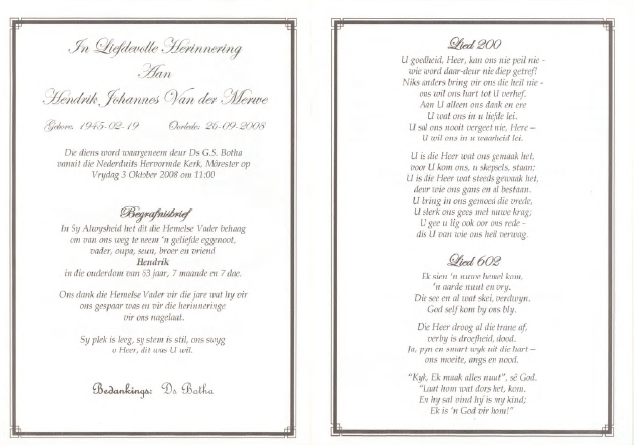 In Liefdevolle Herinnering
Aan
Hendrik Johannes Van der Merwe
Gebore: 1945-02-19 Oorlede: 26-09-2008
Die diens word waargeneem deur Ds G.S. Botha
vanuit die Nederduits Hervormde Kerk, Môrester op
Vrydag 3 Oktober 2008 om 11:00
Begrafnisbrief
In Sy Alwysheid het dit die Hemelse Vader behaag
om van ons weg te neem 'n geliefde eggenoot,
vader, oupa, seun, broer en vriend
Hendrik
in die ouderdom van 63 jaar, 7 maande en 7 dae.
Ons dank die Hemelse Vader vir die jare wat hy vir
ons gespaar was en vir die herinneringe
vir ons nagelaat.
Sy plek is leeg, sy stem is stil, ons swyg
o Heer, dit was U wil.
Bedankings: Ds Botha
Lied 200
U goedheid, Heer, kan ons nie peil nie -
wie word daar-deur nie diep getref?
Niks anders bring vir ons die heil nie -
ons wil ons hart tot U verhef.
Aan U alleen ons dank en ere
U wat ons in u liefde lei.
U sal ons nooit vergeet nie, Here –
U wil ons in u waarheid lei.
U is die Heer wat ons gemaak het,
voor U kom ons, u skepsels, staan:
U is die Heer wat steeds gewaak het,
deur wie ons gans en al bestaan.
U bring in ons gemoed die vrede,
U sterk ons gees met nuwe krag;
U gee u lig ook oor ons rede -
dis U van wie ons heil verwag.
Lied 602
Ek sien 'n nuwe hemel kom,
'n aarde nuut en vry.
Die see en al wat skei, verdwyn.
God self kom by ons bly.
Die Heer droog al die trane af,
verby is droefheid, dood.
Ja, pyn en smart wyk uit die hart –
ons moeite, angs en nood.
"Kyk, Ek maak alles nuut", sê God.
"Laat hom wat dors het, kom.
En hy sal vind hy is my kind;
Ek is 'n God vir hom!"